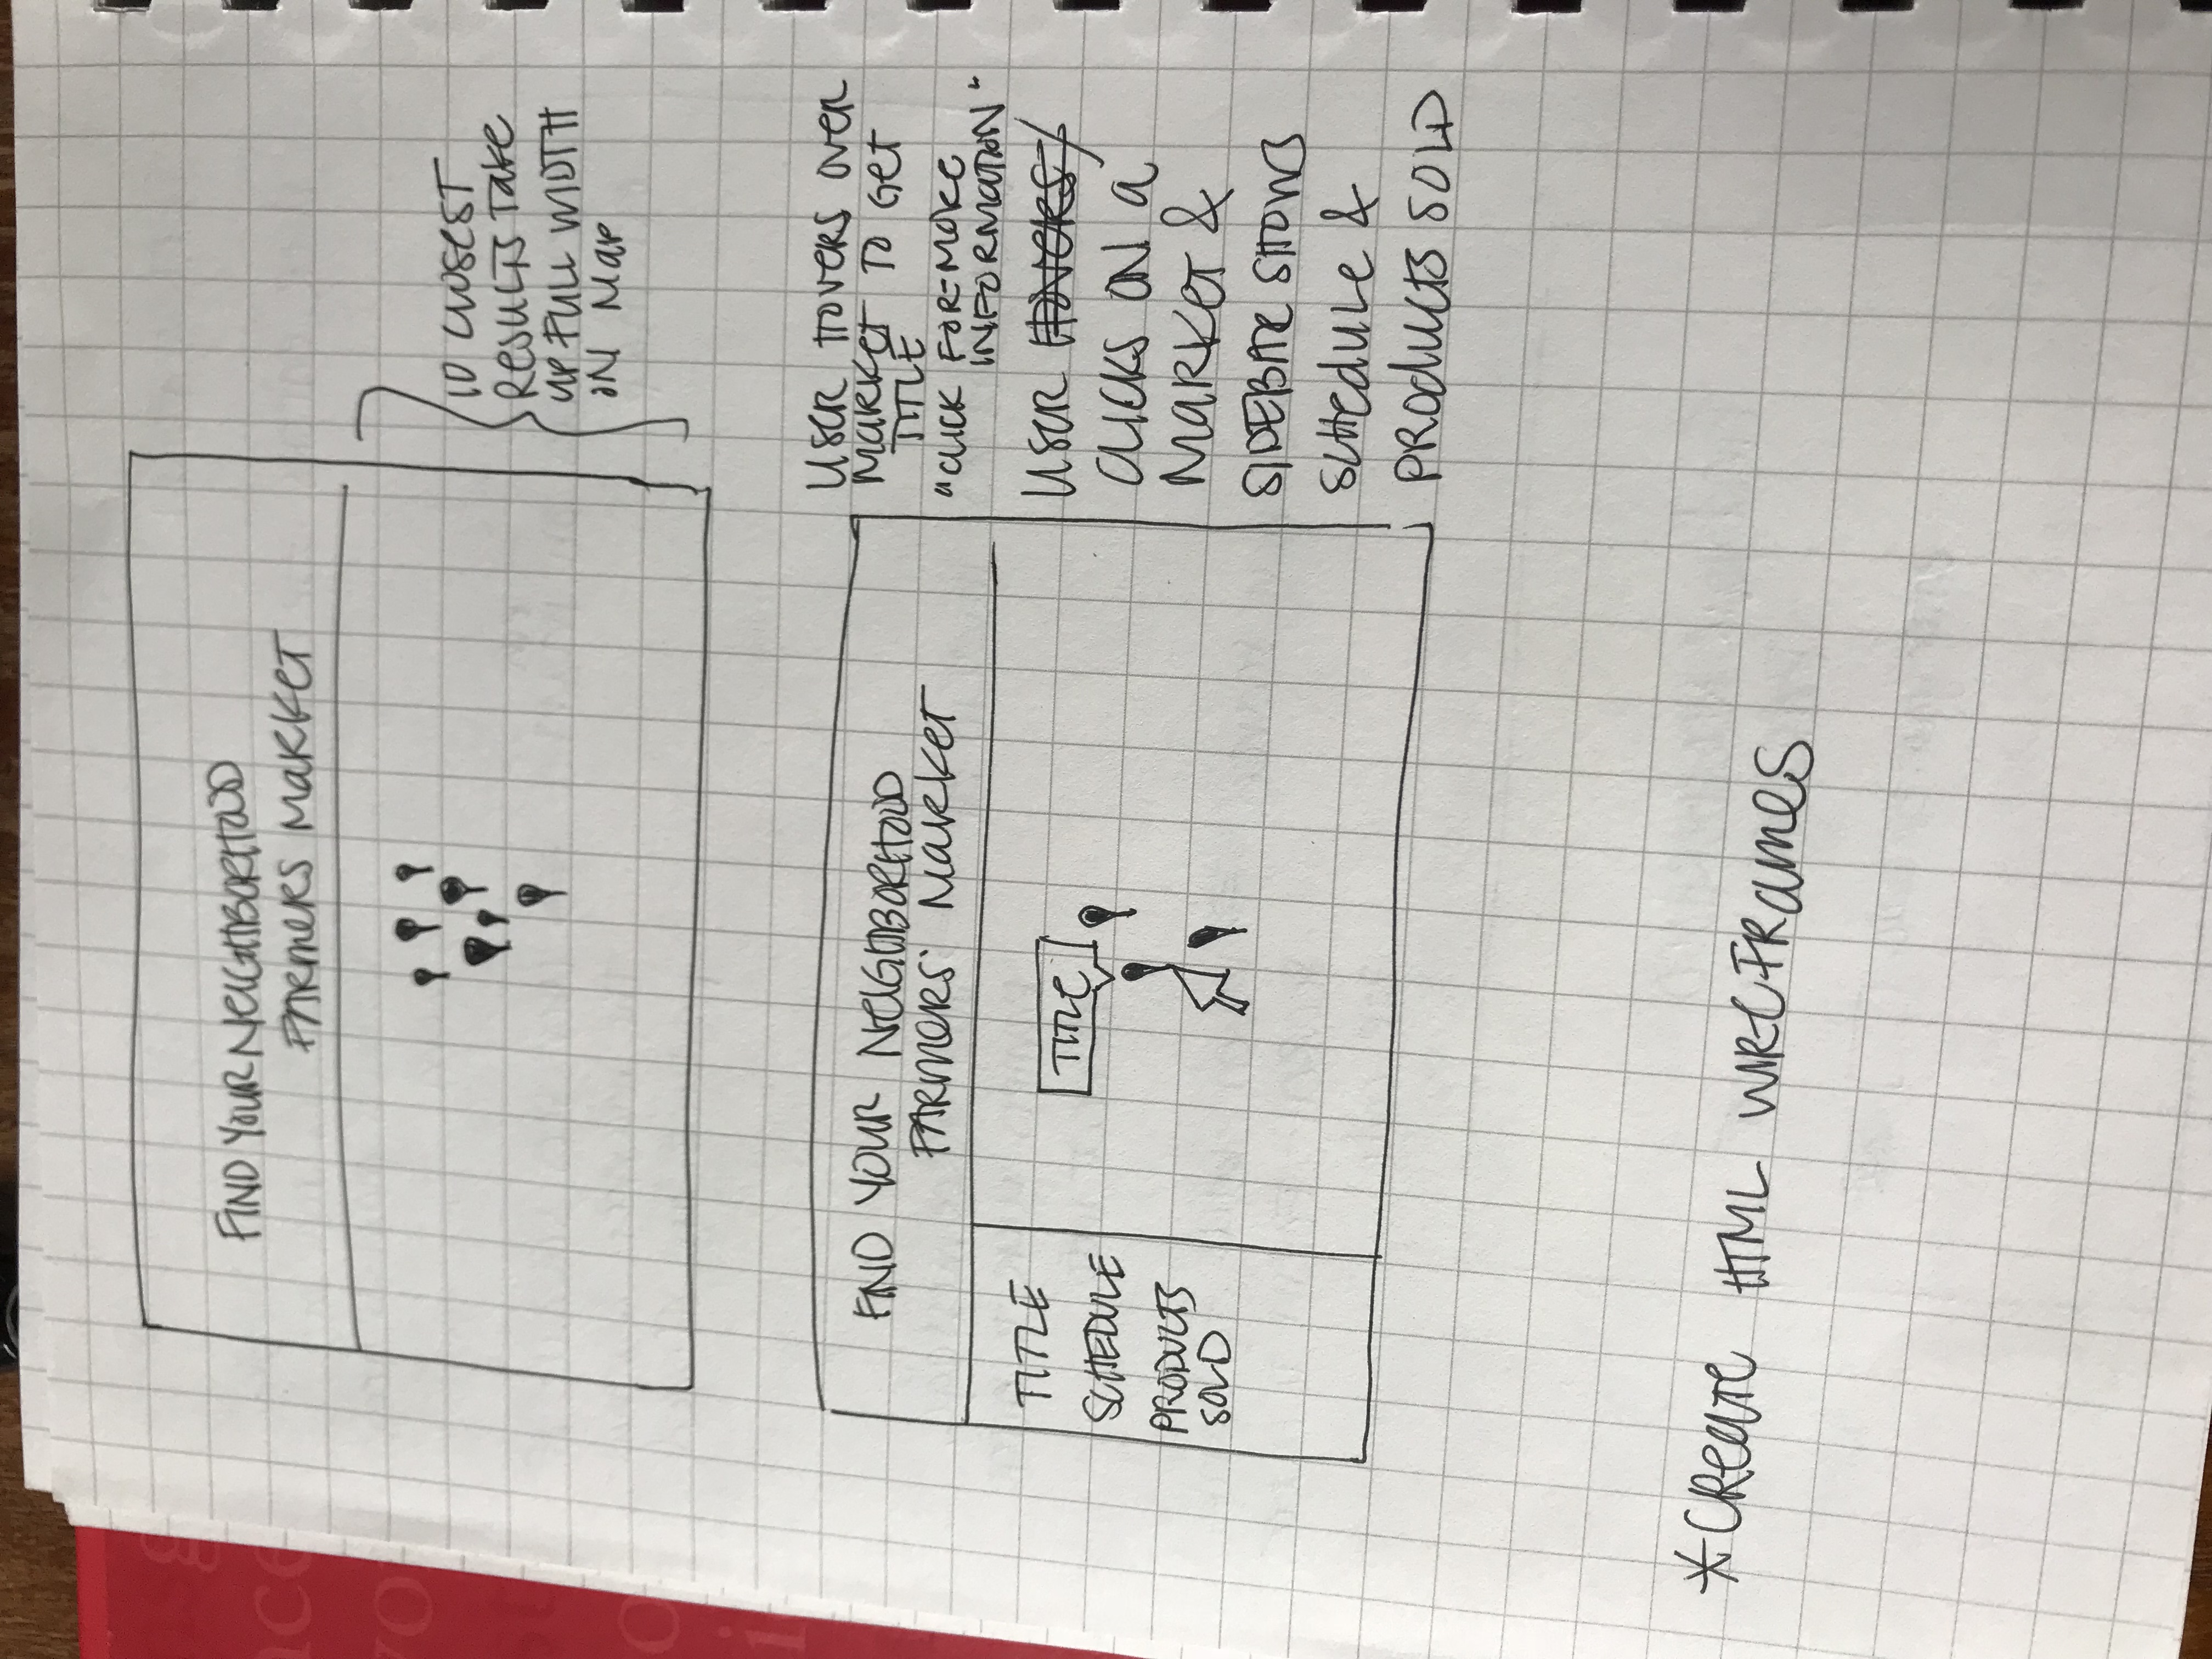 FIND YOUR NEIGHBORHOOD
FARMERS MARKET
10 CLOSEST
RESULTS TAKE
UP FULL WIDTH
ON MAP
FIND YOUR NEIGHBORHOOD
FARMERS' MARKET
TITLE
SCHEDULE
PRODUCTS
SOLD
TITLE
USER HOVERS OVER
MARKET TO GET
TITLE
"CLICK FOR MORE
INFORMATION"
USER HOVERS/
CLICKS ON A
MARKET &
SIDEBAR SHOWS
SCHEDULE &
PRODUCTS SOLD
*CREATE HTML WIREFRAMES